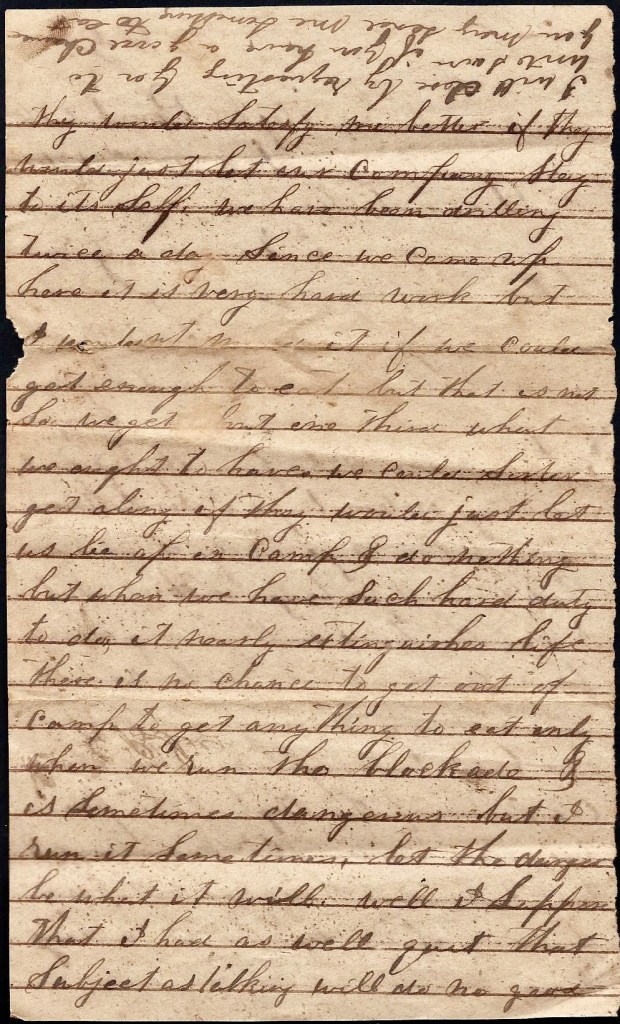 I will close by requesting you to
write soon if you have a good chance
you may send me something to eat
they would satisfy me better if they
would just let our company stay
to its self. we have been drilling
twice a da since we came up
here it is very hard work but
I wouldent m it if we could
get enough to eat but that is not
So we get but one third what
we aught to have, we could sorter
get along if they would just let
us lie up in camp & do nothing
but when we have such hard duty
to do, it nearly extinguishes life
there is no chance to get out of
camp to get anything to eat only
when we run the blockade &
is sometimes dangerous but I
run it sometimes, let the danger
be what it will. well I suppose
that I had as well quit that
subject as talking will do no good